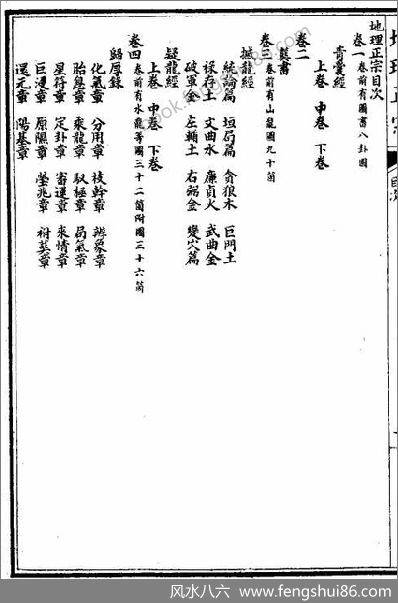 地理正宗目次
卷一 卷前有圖書八卦圖
青囊經
上卷 中卷 下卷
卷二
葬書
卷三 卷前有山龍圖九十箇
撼龍經
統論篇 垣局篇 貪狼木 巨門土
祿存土 文曲水 廉貞火 武曲金
破軍金 左輔土 右弼金 變穴篇
疑龍經
上卷 中卷 下卷
卷四 卷前有水龍等圖三十二箇附圖三十六箇
歸厚錄
化氣章 分用章 枝幹章 辨象章
胎息章 乘龍章 馭極章 局氣章
星符章 定卦章 審運章 來情章
巨浸章 原隰章 塋兆章 祔葬章
還元章 陽基章
目次
风水八六 www.fengshui86.com